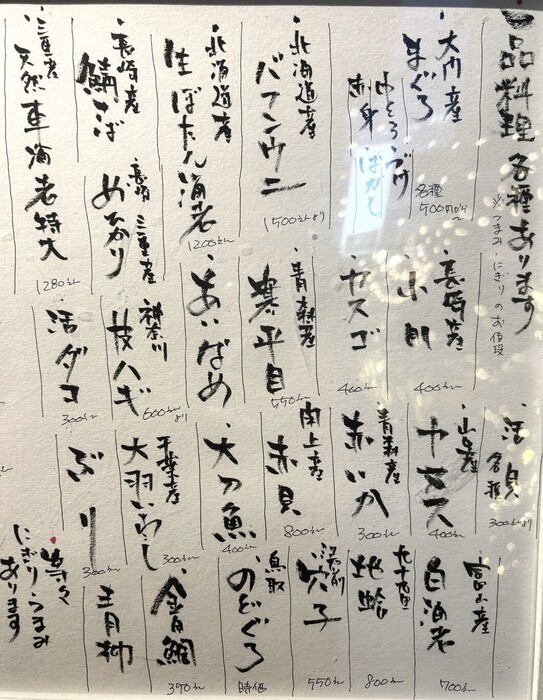 一品料理 各種あります
※つまみ・にぎりのお値段
大間産
まぐろ
中とろ
づけ
赤身
はがし
各種
500円から
北海道産
バフンウニ
1500えんより
北海道産
生ぼたん海老
1200えん
長崎産
鯖さば
三重産
天然車海老特大
1280えん
長崎産
小肌
400えん
ヤスゴ
400えん
青森産
寒平目
550えん
あいなめ
神奈川
皮ハギ
600えんより
長崎 三重産
めひかり
活ダコ
300えん
活貝
各種
300えんより
400えん
青森産
赤いか
300えん
閖上産
赤貝
800えん
太刀魚
400えん
千葉産
大羽いわし
300えん
ぶり
300えん
富山産
白海老
700えん
九十九里
地蛤
800えん
穴子
550えん
鳥取
のどぐろ
時価
金目鯛
390えん
青柳
等々
にぎり つまみ
あります